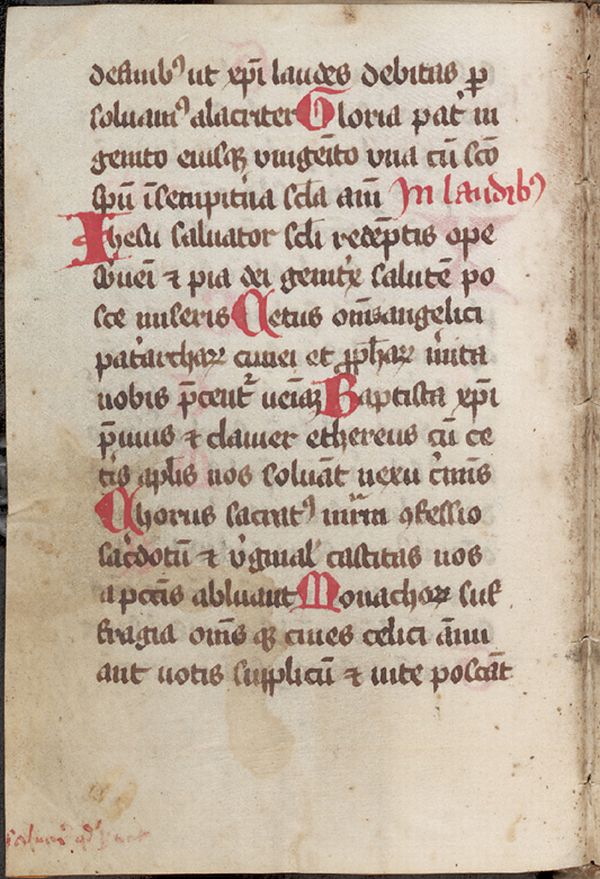 defunb᷒ ut xp̄i laudes debitas ꝑ
soluam᷒ alacriter Gloria pat̾ in
genito eiusq̨ vnigēito vna cū scō
spū ī sempit̾na scl̄a am̄ In laudib᷒
Ihesu saluator scl̄i redēptis ope
s̾ueni ⁊ pia dei genit̾x salutē po
sce miseris Cetus om̄s angelici
pat̾archaꝝ cunei et ꝓph̄aꝝ m̾ita
nobis p̄cent᷑ ueiaꝫ Baptista xp̄i
p̄uius ⁊ clauiger ethereus cū ce
t̾is apl̄is nos soluāt nexu c̾mīs
Chorus sacrat᷒ m̄rm ꝯfessio
sac̾dotū ⁊ v̾ginal̾ castitas nos
a pctīs abluant Monachoꝝ suf
fragia om̄s q̨ ciues celici ānu
ant uotis supplicū ⁊ uite poscāt